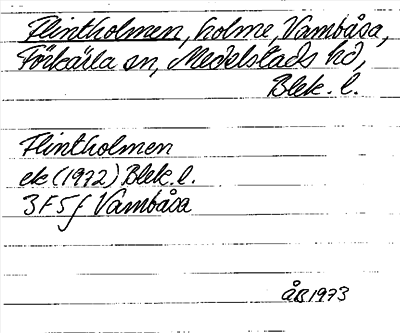 Flintholmen, holme, Vambåsa,
Förkärla sn, Medelstads hd,
Blek. l.
Flintholmen
ek (1972) Blek. l.
3F5f Vambåsa
ÅB 1973